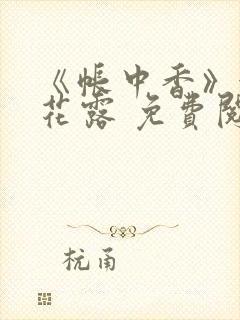 《帐中香》
花露 免費閱
杭甬